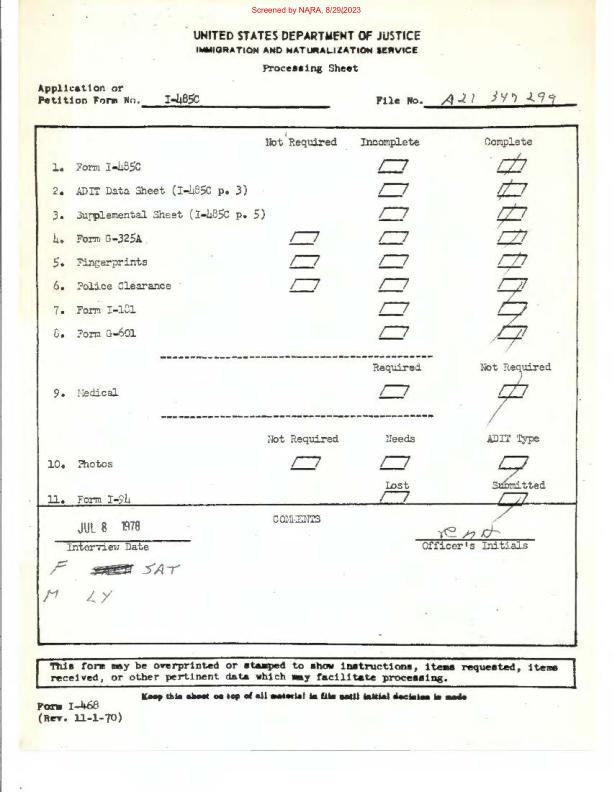 Screened by NARA, 8/29/2023
UNITED STATES DEPARTMENT OF JUSTICE
IMMIGRATION AND NATURALIZATION SERVICE
Processing Sheet
Application or
Petition Form No. I-485C File No. A21 347 299
Not Required Incomplete Complete
1. Form I-485C
2. ADIT Data Sheet (I-485C p. 3)
3. Supplemental Sheet (I-485C p. 5)
4. Form G-325A
5. Fingerprints
6. Police Clearance
7. Form I-181
8. Form G-601
Required Not Required
9. Medical
Not Required Needs ADIT Type
10. Photos
Lost Submitted
11. Form I-94
COMMENTS
JUL 8 1978
Interview Date Officer's Initials
F SAT
M LY
This form may be overprinted or stamped to show instructions, items requested, items
received, or other pertinent data which may facilitate processing.
Keep this sheet on top of all material in file until initial decision is made
Form I-468
(Rev. 11-1-70)